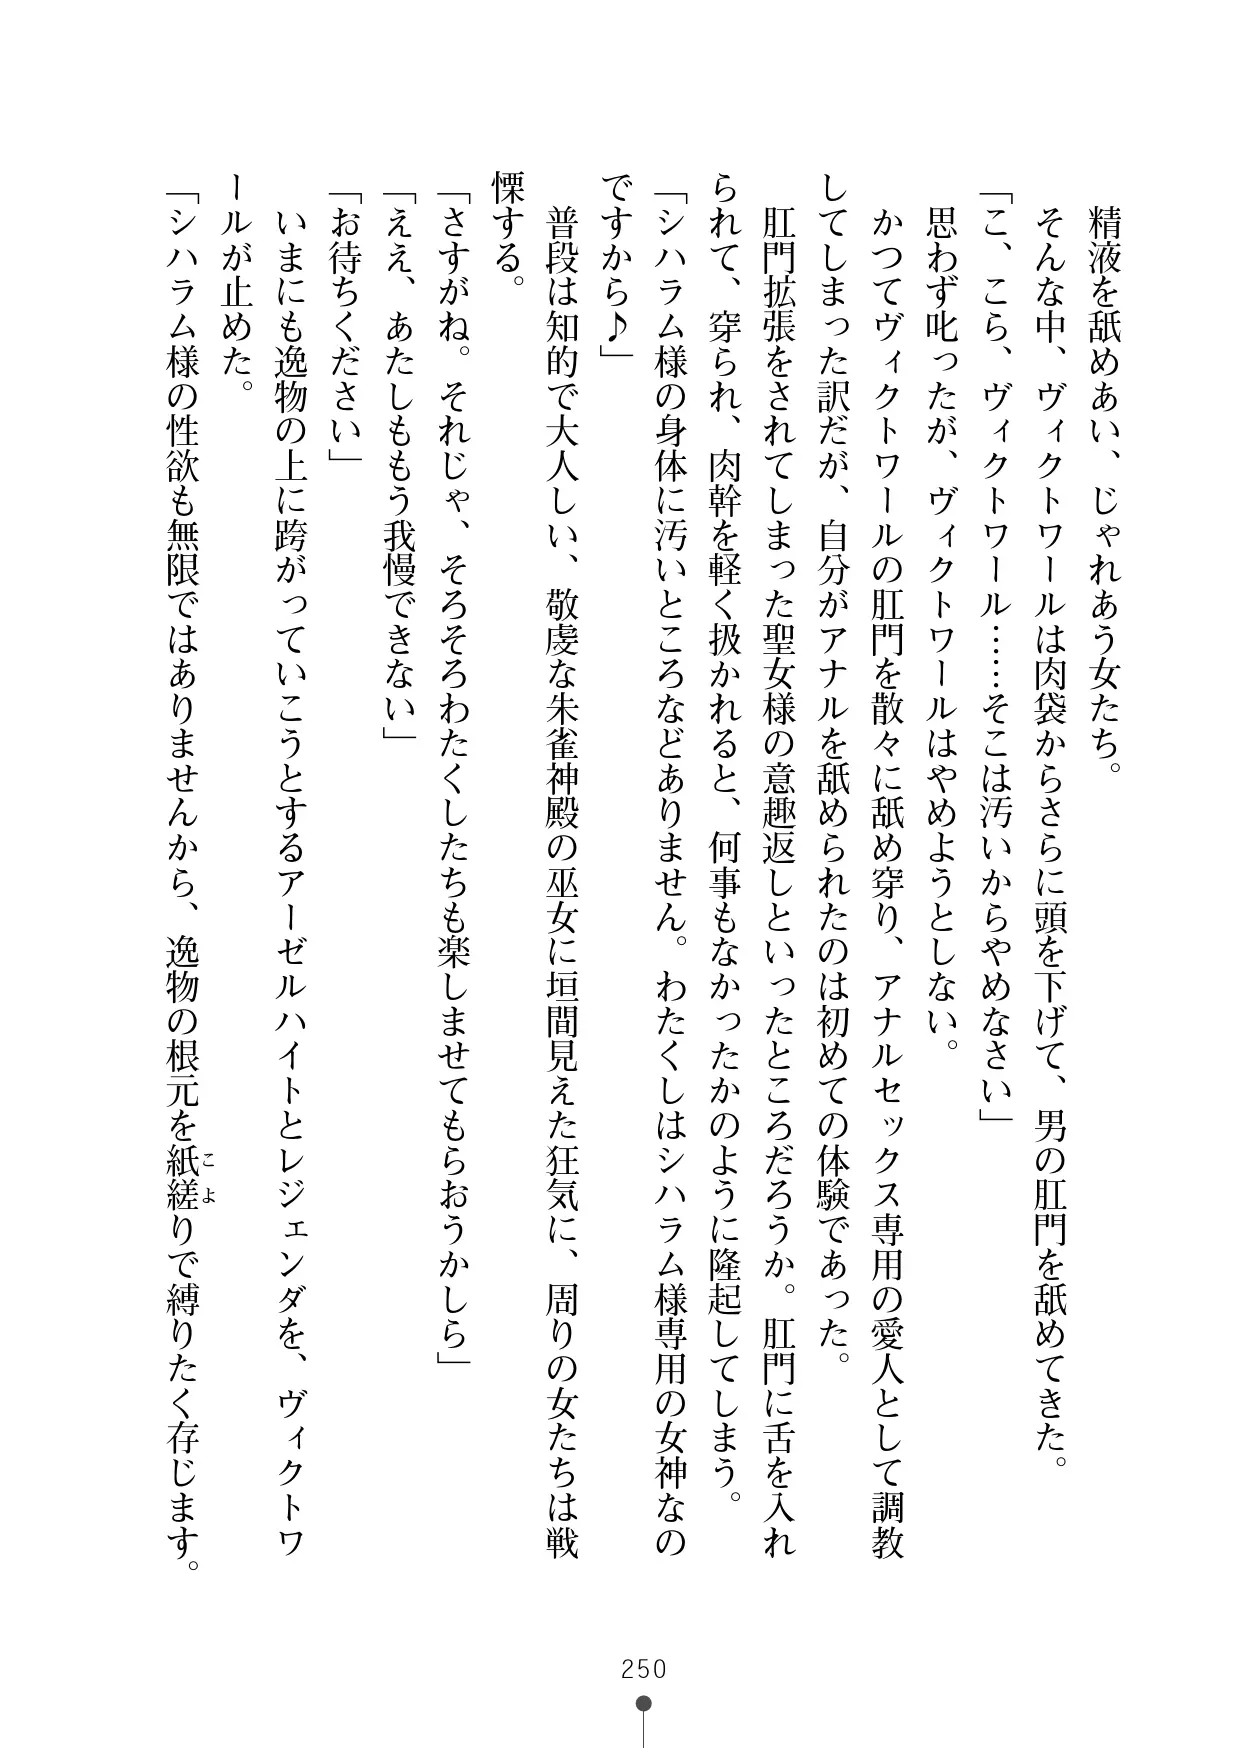 精液を舐めあい、じゃれあう女たち。
そんな中、ヴィクトワールは肉袋からさらに頭を下げて、男の肛門を舐めてきた。
「こ、こら、ヴィクトワール……そこは汚いからやめなさい」
思わず叱ったが、ヴィクトワールはやめようとしない。
かつてヴィクトワールの肛門を散々に舐め穿り、アナルセックス専用の愛人として調教
してしまった訳だが、自分がアナルを舐められたのは初めての体験であった。
肛門拡張をされてしまった聖女様の意趣返しといったところだろうか。肛門に舌を入れ
られて、穿られ、肉幹を軽く扱かれると、何事もなかったかのように隆起してしまう。
「シハラム様の身体に汚いところなどありません。わたくしはシハラム様専用の女神なの
ですから♪」
普段は知的で大人しい、敬虔な朱雀神殿の巫女に垣間見えた狂気に、周りの女たちは戦
慄する。
「さすがね。それじゃ、そろそろわたくしたちも楽しませてもらおうかしら」
「ええ、あたしももう我慢できない」
「お待ちください」
いまにも逸物の上に跨がっていこうとするアーゼルハイトとレジェンダを、ヴィクトワ
ールが止めた。
「シハラム様の性欲も無限ではありませんから、逸物の根元を紙縒りで縛りたく存じます。
こよ
250